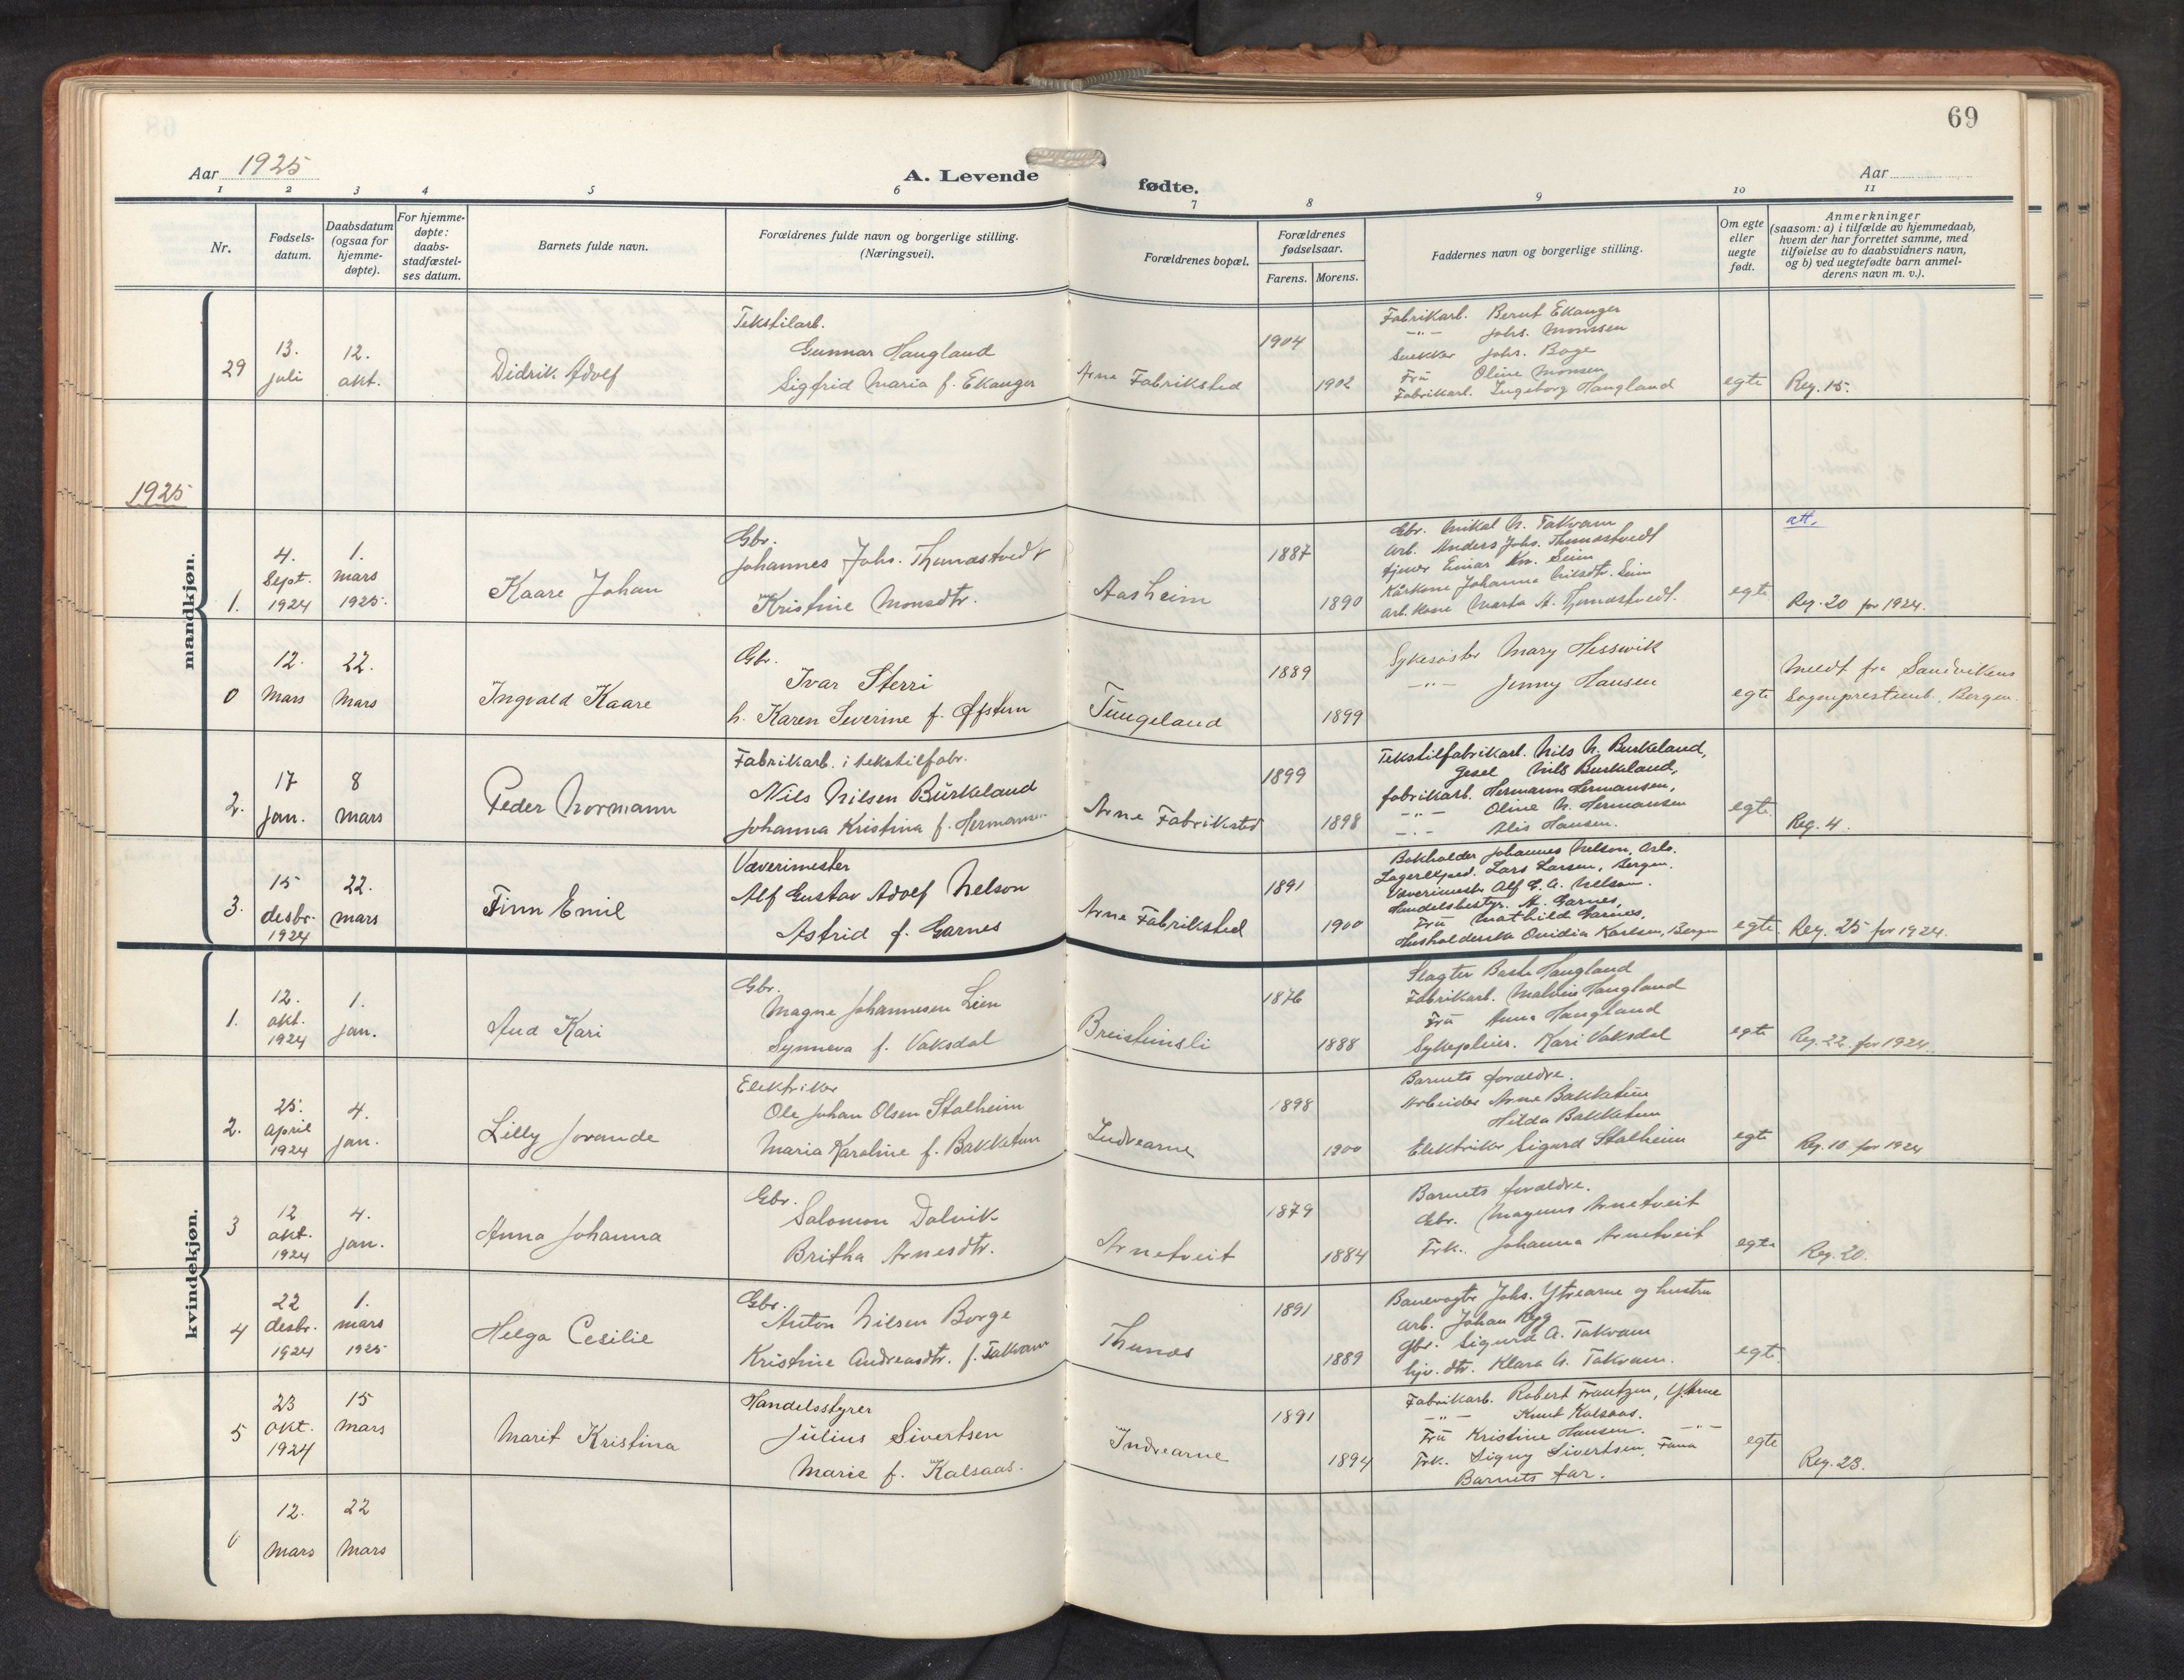 69
Aar 1925
A. Levende
fødte.
Aar
1 2 3 4 5 6 7 8 9 10 11
Nr.
Fødsels-
datum.
Daabsdatum
(ogsaa for
hjemme-
døpte).
For hjemme-
døpte:
daabs-
stadfæstel-
ses datum.
Barnets fulde navn.
Forældrenes fulde navn og borgerlige stilling.
(Næringsvei).
Forældrenes bopæl.
Forældrenes
fødselsaar.
Farens. Morens.
Faddernes navn og borgerlige stilling.
Om egte
eller
uegte
født.
Anmerkninger
(saasom: a) i tilfælde av hjemmedaab,
hvem der har forrettet samme, med
tilføielse av to daabsvidners navn,
og b) ved uegtefødte barn anmel-
derens navn m. v.).
29
13.
juli
12.
okt.
Didrik Adolf
Tekstilarb.
Gunnar Haugland
Sigfrid Maria f. Ekanger
Arne Fabriksted
1904
1902
Fabrikarb. Bernt Ekanger
—"— Johs. Monssen
Snekker Johs. Boge
Fru Oline Monsen
Fabrikarb. Ingeborg Haugland
egte
Reg. 15.
1925
mandkjøn.
1.
4.
Sept.
1924
1.
mars
1925.
Kaare Johan
Gbr.
Johannes Johs. Thunæstvedt
Kristine Monsdtr.
Aasheim
1887
1890
Gbr. Mikal N. Takvam
Arb. Anders Johs. Thunæstvedt
tjener Einar Kn. Seim
Kårkone Johanna Nilsdtr. Seim
arb. kone Marta A. Thunæstvedt.
egte
att.
Reg. 20 for 1924.
0
12.
Mars
22.
Mars
Ingvald Kaare
Gbr.
Ivar Sterri
h. Karen Severine f. Øfstun
Tungeland
1889
1899
Sykesøster Mary Hesswik
—"— Jenny Hansen
egte
Meldt fra Sandvikens
Sogneprestemb. Bergen.
2.
17
jan.
8
mars
Peder Normann
Fabrikarb. i tekstilfabr.
Nils Nilsen Burkeland
Johanna Kristina f. Hermans..
Arne Fabriksted
1899
1898
Tekstilfabrikarb. Nils N. Burkeland,
Gesel Nils Burkeland,
fabrikarb. Hermann Hermansen,
—"— Oline N. Hermansen
—"— Alis Hansen.
egte.
Reg. 4.
3.
15
desbr.
1924
22.
mars
Finn Emil
Væverimester
Alf Gustav Adolf Nelson
Astrid f. Garnes
Arne Fabriksted
1891
1900
Bokholder Johannes Nelson, Oslo.
Lagereksped. Lars Larsen, Bergen.
Væverimester Alf G. A. Nelson.
Handelsbestyr. A. Garnes,
Fru Mathild Garnes,
Husholderske Ovidia Karlsen, Bergen
egte.
Reg. 25 for 1924.
kvindekjøn.
1.
12.
okt.
1924
1.
jan.
Aud Kari
Gbr.
Magne Johannesen Lien
Synneva f. Vaksdal
Breisteinsli
1876
1888
Slagter Haugland
Fabrikarb. Malvin Haugland
Fru Anna Haugland
Sykepleier. Kari Vaksdal
egte
Reg. 22 for 1924.
2.
25.
april
1924
4.
jan.
Lilly Jorande
Elektriker
Ole Johan Olsen Stalheim
Maria Karoline f. Bakketun
Indrearne
1898
1900
Barnets forældre.
Arbeider Arne Bakketun
Hilda Bakketun
Elektriker Sigurd Stalheim
egte
Reg. 10 for 1924
3
12
okt.
1924
4.
jan.
Anna Johanna
Gbr.
Salomon Dalvik
Britha Arnesdtr.
Arnetveit
1879
1884
Barnets forældre.
Gbr. Magnus Arnetveit
Frk. Johanna Arnetveit
egte
Reg. 20.
4
22
desbr.
1924
1.
mars
1925
Helga Cesilie
Gbr.
Anton Nilsen Borge
Kristine Andreasdtr. f. Takvam
Thunæs
1891
1889
Banevogter Johs. Ytrearne og hustru
Arb. Johan Ryg
gbr. Sigurd A. Takvam
hjv. dtr. Klara A. Takvam.
egte.
5
23
okt.
1924
15
mars
Marit Kristina
Handelsstyrer
Julius Sivertsen
Marie f. Kalsaas.
Indrearne
1891
1894
Fabrikarb. Robert Frantzen, Y. Arne
—"— Knut Kalsaas.
Fru Kristine Hansen. —"—
Frk. Signy Sivertsen, Fana
Barnets far.
egte
Reg. 23.
0
12.
mars
22
Mars